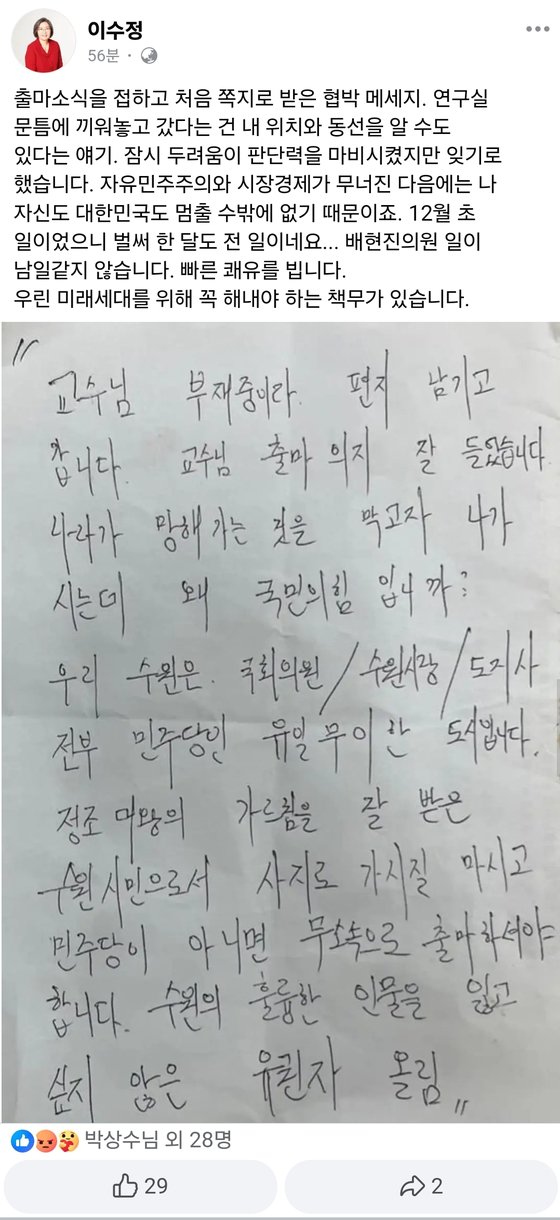 이수정
56분 ·
출마소식을 접하고 처음 쪽지로 받은 협박 메세지. 연구실
문틈에 끼워놓고 갔다는 건 내 위치와 동선을 알 수도
있다는 얘기. 잠시 두려움이 판단력을 마비시켰지만 잊기로
했습니다. 자유민주주의와 시장경제가 무너진 다음에는 나
자신도 대한민국도 멈출 수밖에 없기 때문이죠. 12월 초
일이었으니 벌써 한 달도 전 일이네요... 배현진의원 일이
남일같지 않습니다. 빠른 쾌유를 빕니다.
우린 미래세대를 위해 꼭 해내야 하는 책무가 있습니다.
"
교수님 부재중이라. 편지 남기고
갑니다. 교수님 출마 의지 잘 들었습니다.
나라가 망해가는 것을 막고자 나가
시는데 왜 국민의힘 입니까?
우리 수원은. 국회의원/수원시장/도지사
전부 민주당인 유일무이한 도시입니다.
정조 대왕의 가르침을 잘 받은
수원시민으로서 사지로 가시질 마시고
민주당이 아니면 무소속으로 출마하셔야
합니다. 수원의 훌륭한 인물을 잃고
싶지 않은 유권자 올림 "
박상수님 외 28명
29
2